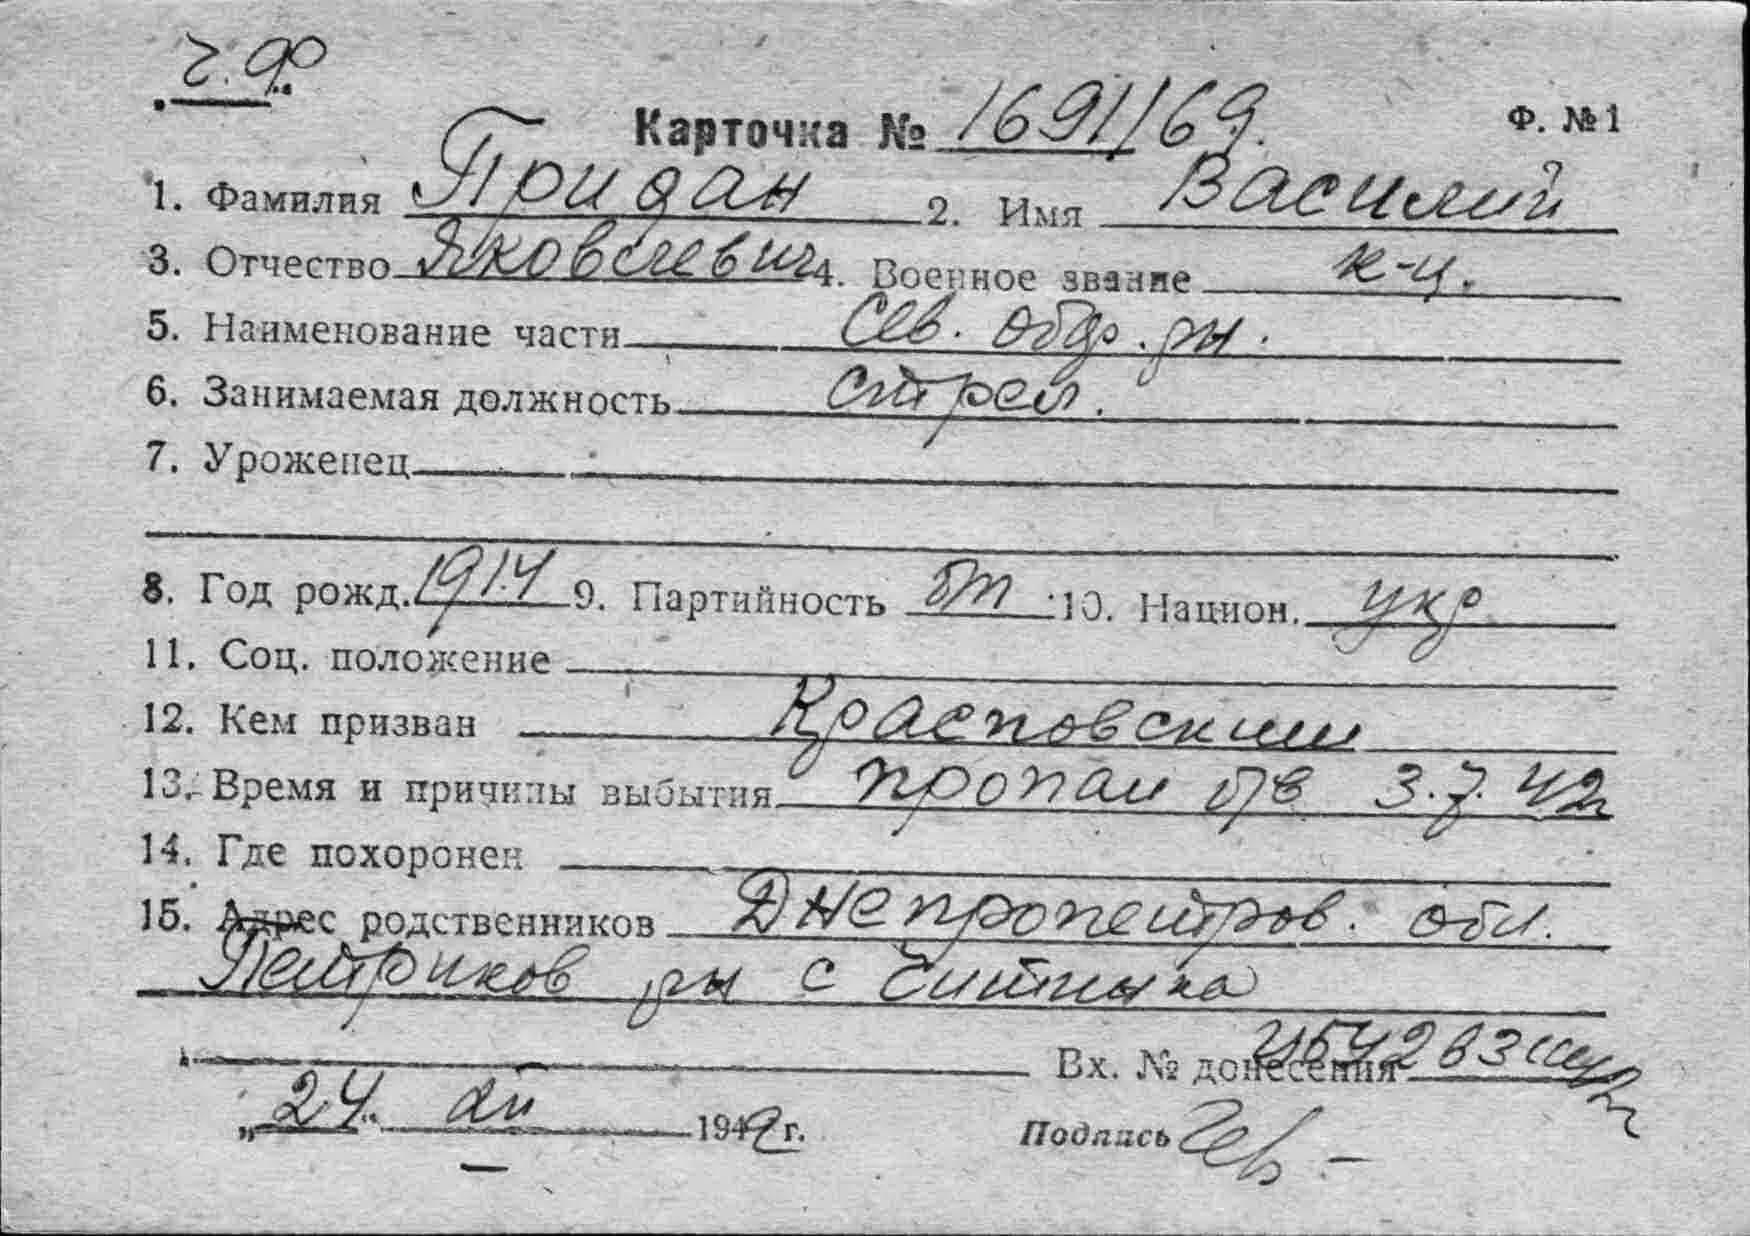 ч. ф
Карточка № 1691/69. Ф. №1
1. Фамилия Придан 2. Имя Василий
3. Отчество Яковлевич 4. Военное звание к-ц.
5. Наименование части Сев. обор. рн.
6. Занимаемая должность стрел.
7. Уроженец
8. Год рожд. 1914 9. Партийность бп 10. Национ. укр
11. Соц. положение
12. Кем призван
13. Время и причины выбытия пропал б/в 3.7.42г
14. Где похоронен
15. Адрес родственников Днепропетров. обл.
Петриков рн с
Вх. № донесения
„24" 194 г. Подпись